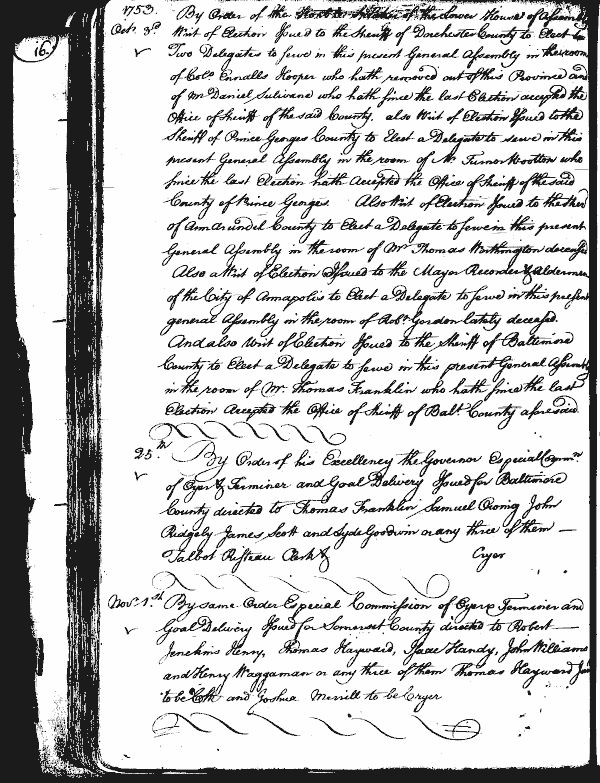 1753
Oct. 3d By Order of the lower House of Assembly
16.
Writ of Election Issued to the Sheriff of Dorchester County to Elect
Two Delegates to serve in this present General Assembly in the room
of Colo Ennalls Hooper who hath removed out of this Province and
of Mr Daniel Sulivane who hath since the last Election accepted the
Office of Sheriff of the said County. also Writ of Election Issued to the
Sheriff of Prince Georges County to Elect a Delegate to serve in this
present General Assembly in the room of Mr. Turnor Wootton who
since the last Election hath Accepted the Office of Sheriff of the said
County of Prince Georges Also Writ of Election Issued to the
of Ann Arundel County to Elect a Delegate to serve in this present
General Assembly in the room of Mr Thomas Worthington
Also a Writ of Election Issued to the Mayor Recorder & Aldermen
of the City of Annapolis to Elect a Delegate to serve in this present
general Assembly in the room of Robt Gordon lately deceased.
And also Writ of Election Issued to the Sheriff of Baltimore
County to Elect a Delegate to serve in this present General Assembly
in the room of Mr. Thomas Franklin who hath since the last
Election Accepted the Office of Sheriff of Balt County aforesaid
25th By Order of his Excellency the Governor Especial Commn.
of Oyer & Terminer and Goal Delivery Issued for Baltimore
County directed to Thomas Franklin Samuel Owing John
Ridgely James Scott and Lyde Goodwin or any three of them —
Talbot Risteau Clerk & Cryer
Novr 1st By same Order Especial Commission of Oyer & Terminer and
Goal Delivery Issued for Somerset County directed to Robert —
Jenckins Henry, Thomas Hayward, Isaac Handy, John Williams
and Henry Waggaman or any three of them Thomas Hayward
to be Clk and Joshua Merrill to be Cryer